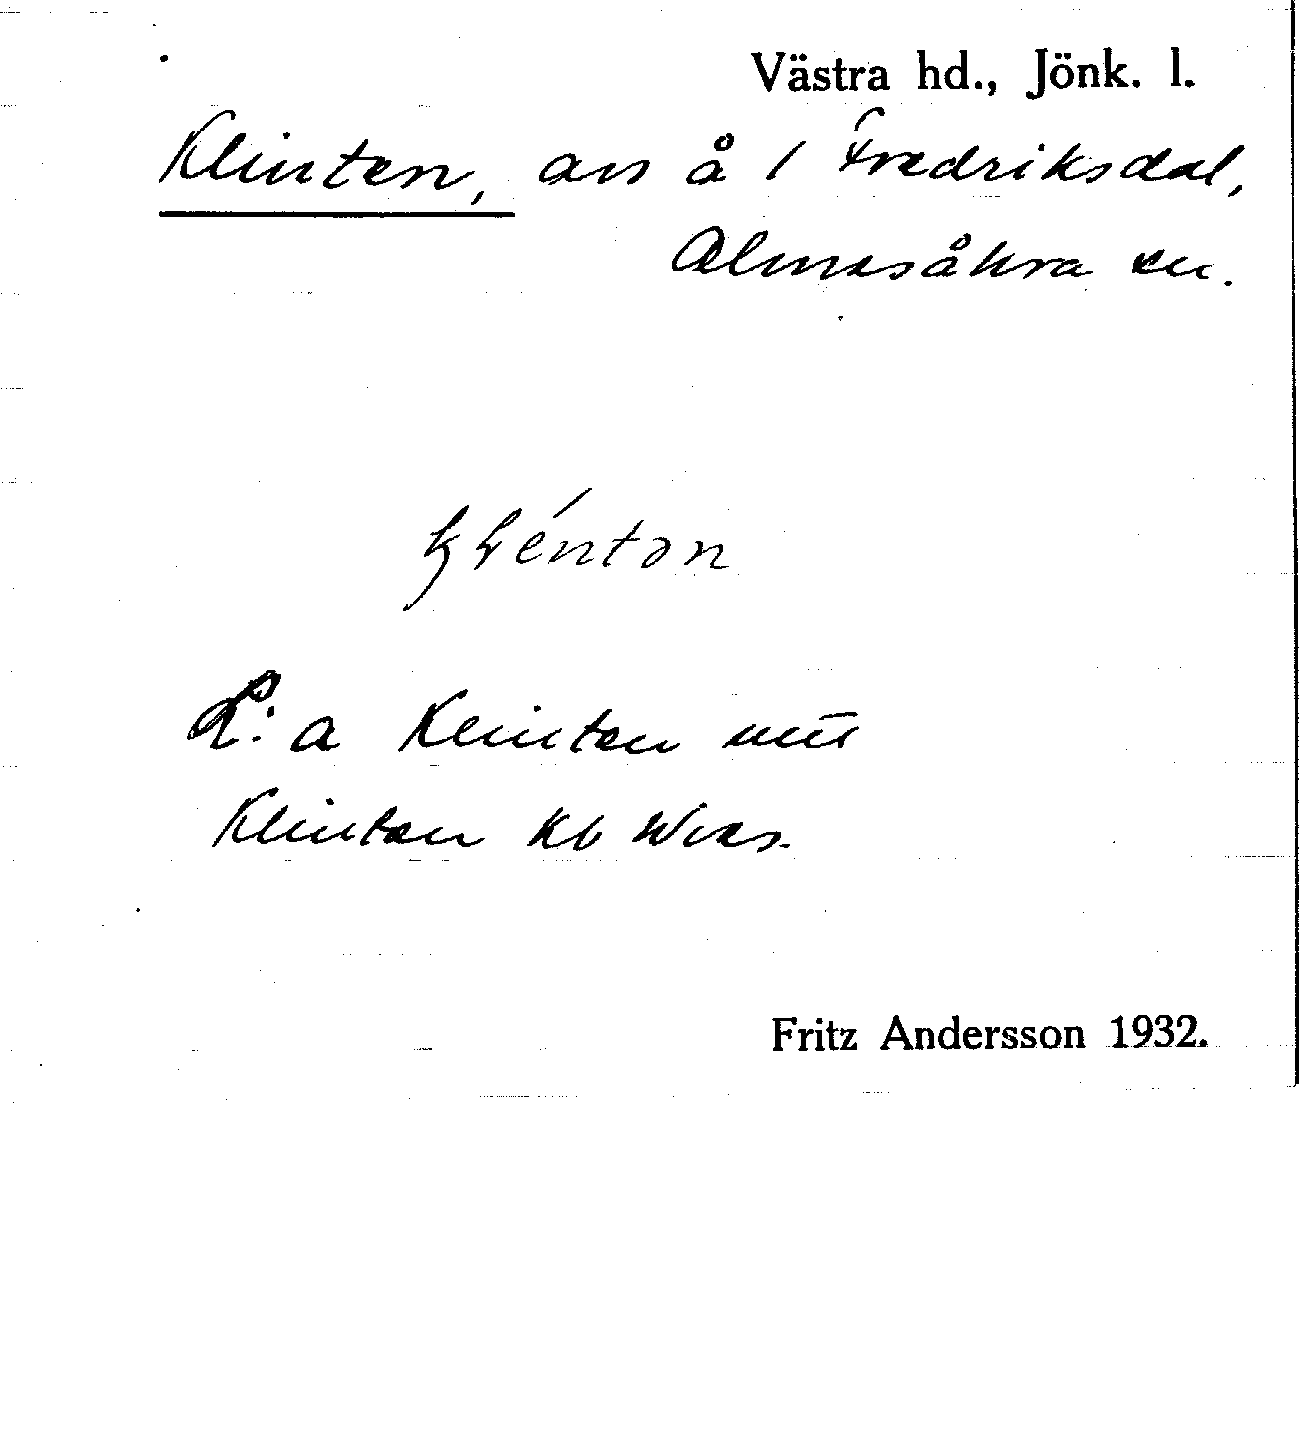 Västra hd., Jönk. l.
Klinten, avs å 1 Fredriksdal,
Almesåkra sn.
klénton
L: a Klinten
Klinten kb
Fritz Andersson 1932.